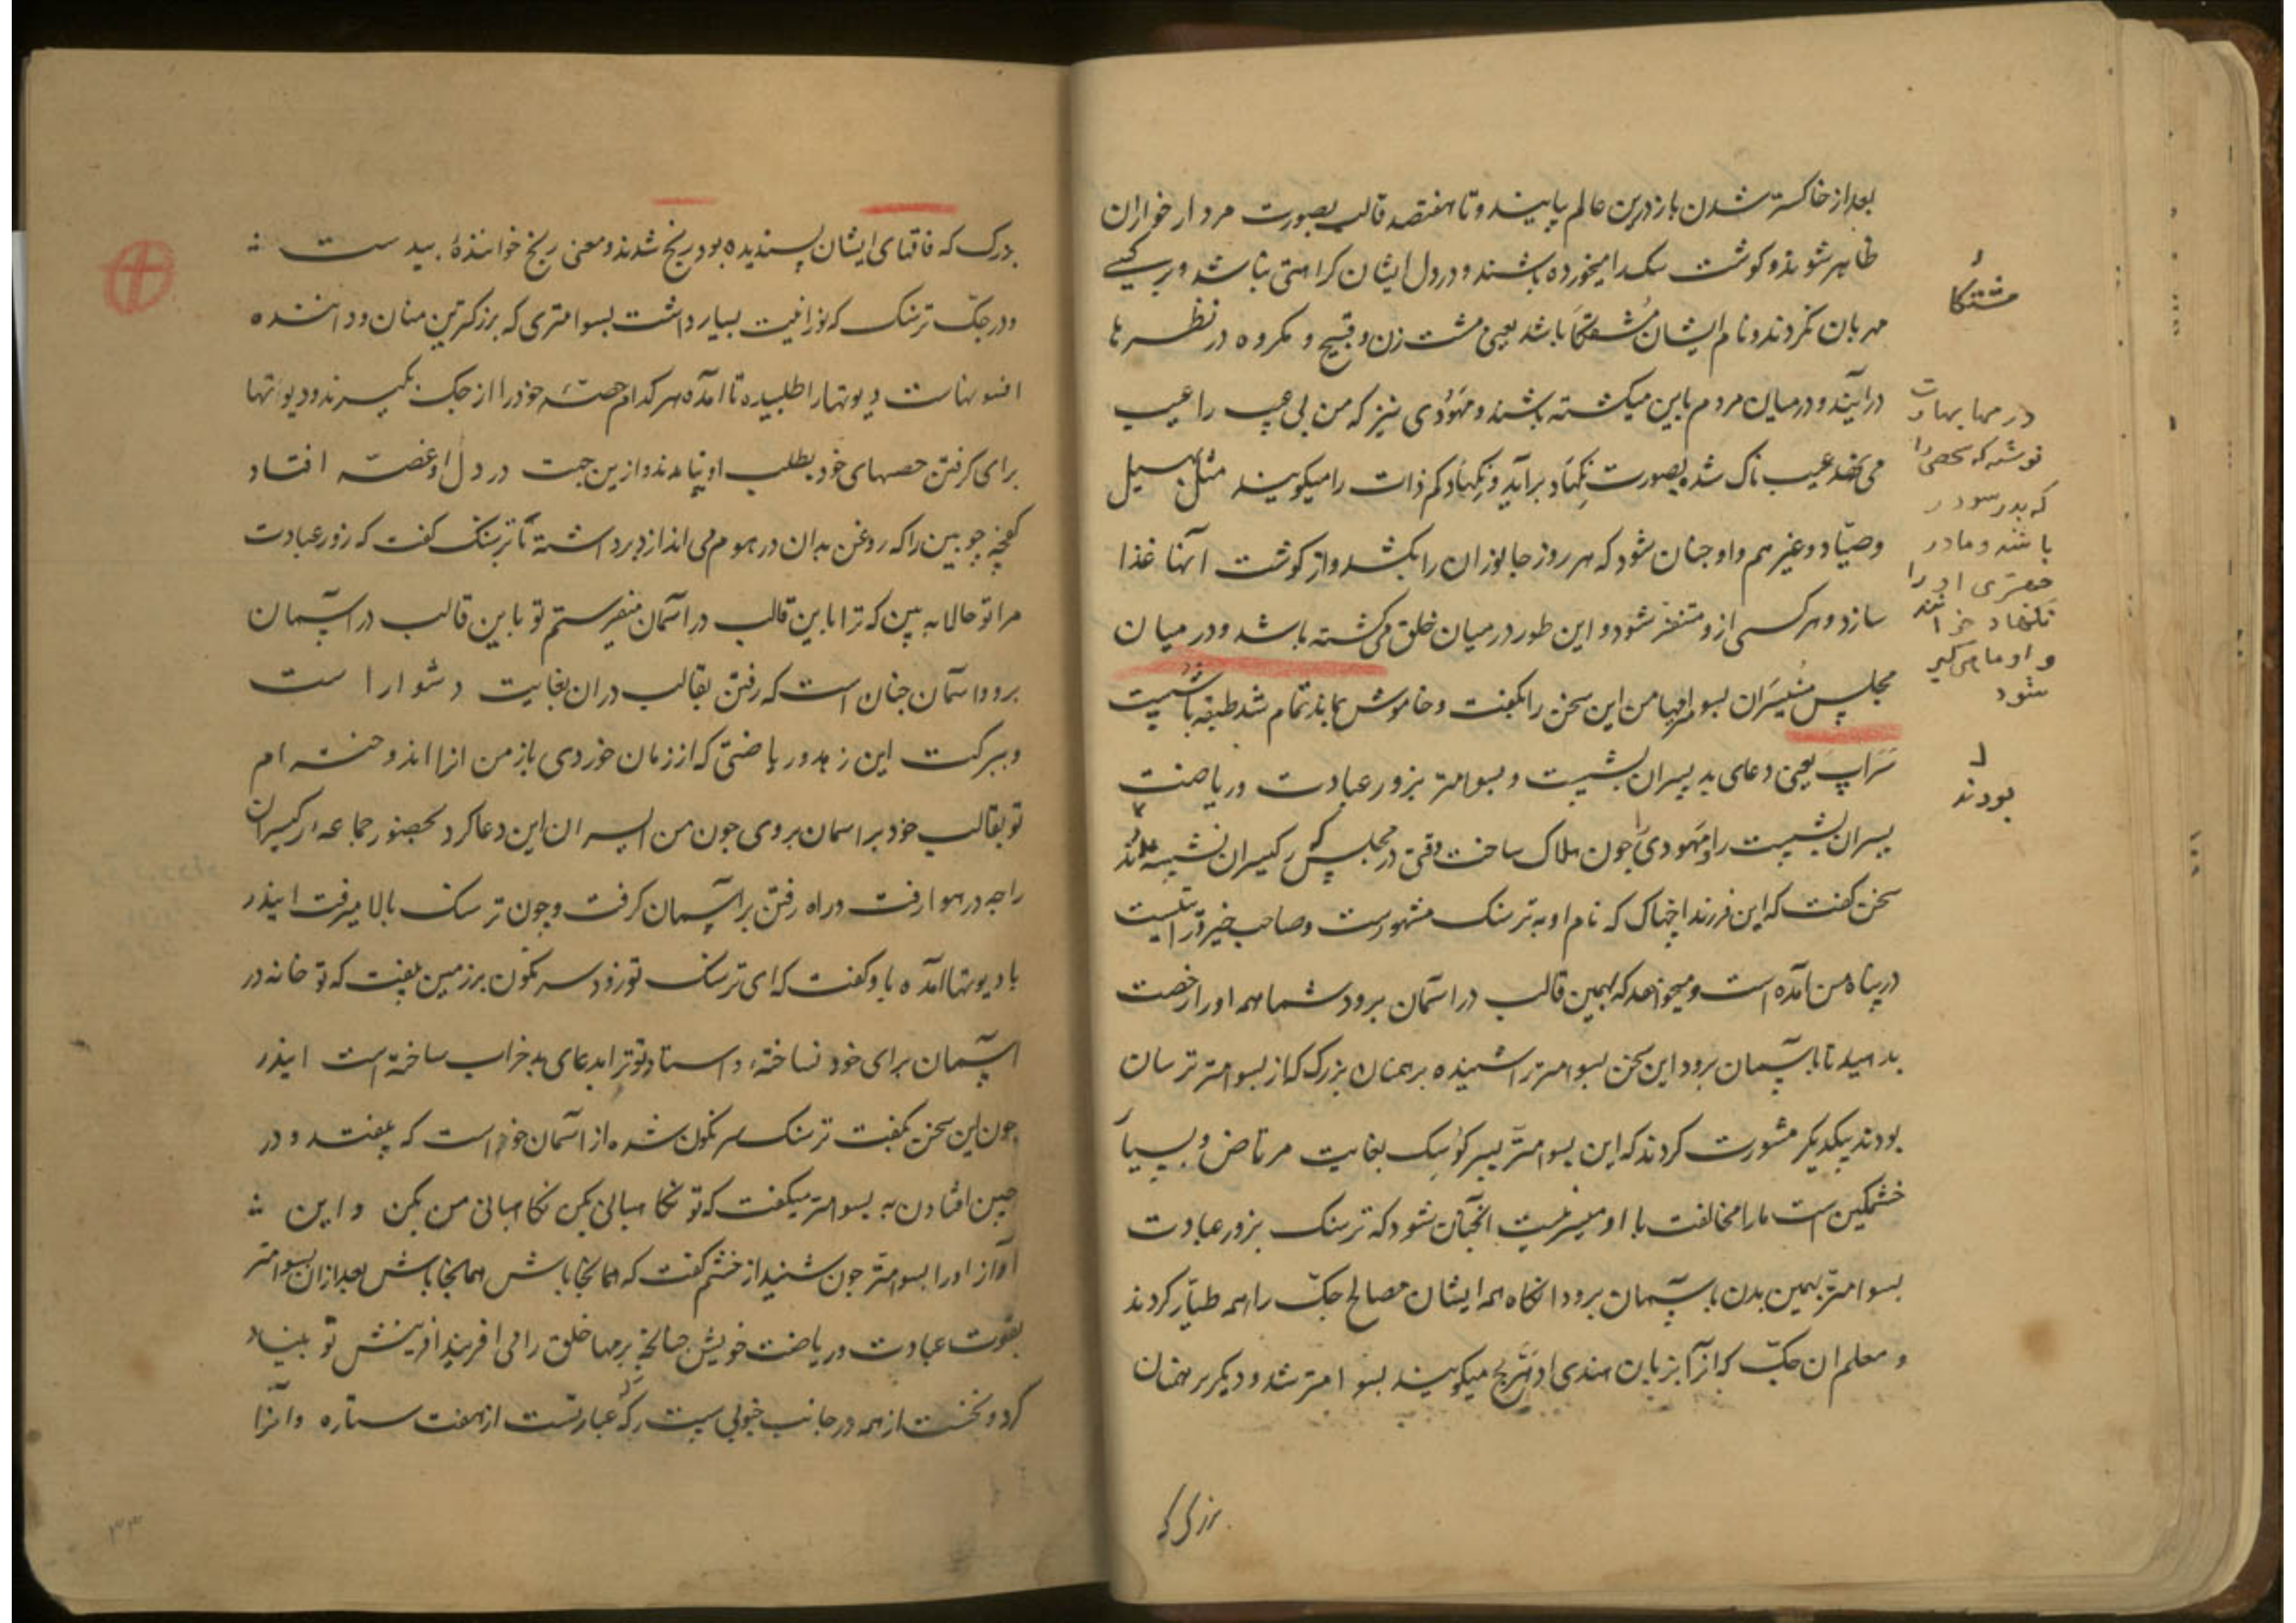 بعد از خاکستر شدن باز درین عالم پایند و تا هفتصد قالب بصورت مردار خواران
ظاهر شوند و کوشت سک را میخورده باشند و در دل ایشان کراهتی نباشد و بر کسے
مهربان نکردند و نام ایشان مُشتکا باشد یعنی مشت زن و قبیح و مکروه در نظرها
درآیند و در میان مردم باین میکشته باشند و مهودی نیز که من بی عیب را عیب
می نهد عیب ناک شده بصورت نکهاد برآید و نکهاد کم ذات را میکویند مثل بهیل
و صیّاد و غیرهم و او چنان شود که هر روز جانوران را بکشد و از کوشت آنها غذا
سازد و هر کسی ازو متنفر شود و این طور در میان خلق می کشته باشد و در میان
مجلس منیسران بسوامتر این سخن را بکفت و خاموش بماند تمام شد طبقه بششت
سَرَاپ یعنی دعای بد پسران بششت و بسوامتر بزور عبادت و ریاضت
پسران بششت را و مهودی را چون هلاک ساخت وقتی در مجلس رکیسران نشسته
سخن کفت که این فرزند اچهاک که نام او به ترسنک مشهورست و صاحب خیر
در پناه من آمده است و میخواهد که بهمین قالب در آسمان برود شما همه او را رخصت
بدهید تا بآسمان برود این سخن بسوامتر را شنیده برهمنان بزرک که از بسوامتر ترسان
بودند بیکدیکر مشورت کردند که این بسوامتر پسر کوسک بغایت مرتاض و بسیار
خشمکین است ما را مخالفت با او میسر نیست آنچنان شود که ترسنک بزور عبادت
بسوامتر بهمین بدن بآسمان برود انکاه همه ایشان مصالح جک را همه طیّار کردند
و معلم ان جک که آنرا بزبان هندی ادهرج میکویند بسوامتر شد و دیکر برهمنان
بزرک که
مشتکا
در مها بهارت
نوشته که شخصی را
که پدر سودر
باشد و مادر
چهتری او را
نکهاد خوانند
و او ماهی کیر
شود
بودند
بزرک که فاقهای ایشان پسندیده بود ریخ شدند و معنی ریخ خوانندهٔ بید ست
و در جک ترسنک که نورانیت بسیار داشت بسوامتری که بزرکترین منان و داننده
افسونهاست دیوتها را طلبیده تا آمده هر کدام حصّهٔ خود را از جک بکیرند و دیوتها
برای کرفتن حصهای خود بطلب او نیامدند و ازین جهت در دل او غصّه افتاد
کفچه چوبین را که روغن بدان در هوم می اندازد برداشته با ترسنک کفت که زور عبادت
مرا تو حالا به بین که ترا باین قالب در آسمان میفرستم تو باین قالب در آسمان
برو و آسمان چنان است که رفتن بقالب دران بغایت دشوارا ست
و ببرکت این زهد و ریاضتی که از زمان خوردی باز من انرا اندوخته ام
تو بقالب خود بر اسمان بروی چون من این دعا کرد بحضور جماعه رکیسران
راجه در هوا رفت و راه رفتن بر آسمان کرفت و چون ترسنک بالا میرفت ایندر
با دیوتها آمده باو کفت که ای ترسنک تو زود سرنکون بر زمین بیفت که تو خانه در
آسمان برای خود نساختهٔ و استاد تو ترا بدعای بد خراب ساخته است ایندر
چون این سخن بکفت ترسنک سرنکون شده از آسمان خواست که بیفتد و در
حین افتادن به بسوامتر میکفت که تو نکاهبانی بکن نکاهبانی من بکن و این
آواز او را بسوامتر چون شنید از خشم کفت که همانجا باش همانجا باش بعد ازان بسوامتر
بقوت عبادت و ریاضت خویش چنانچه برمها خلق را می آفریند آفرینش نو بنیاد
کرد و نخست از همه در جانب جنوبی سپت رک که عبارتست از هفت ستاره و آنرا
۳۳